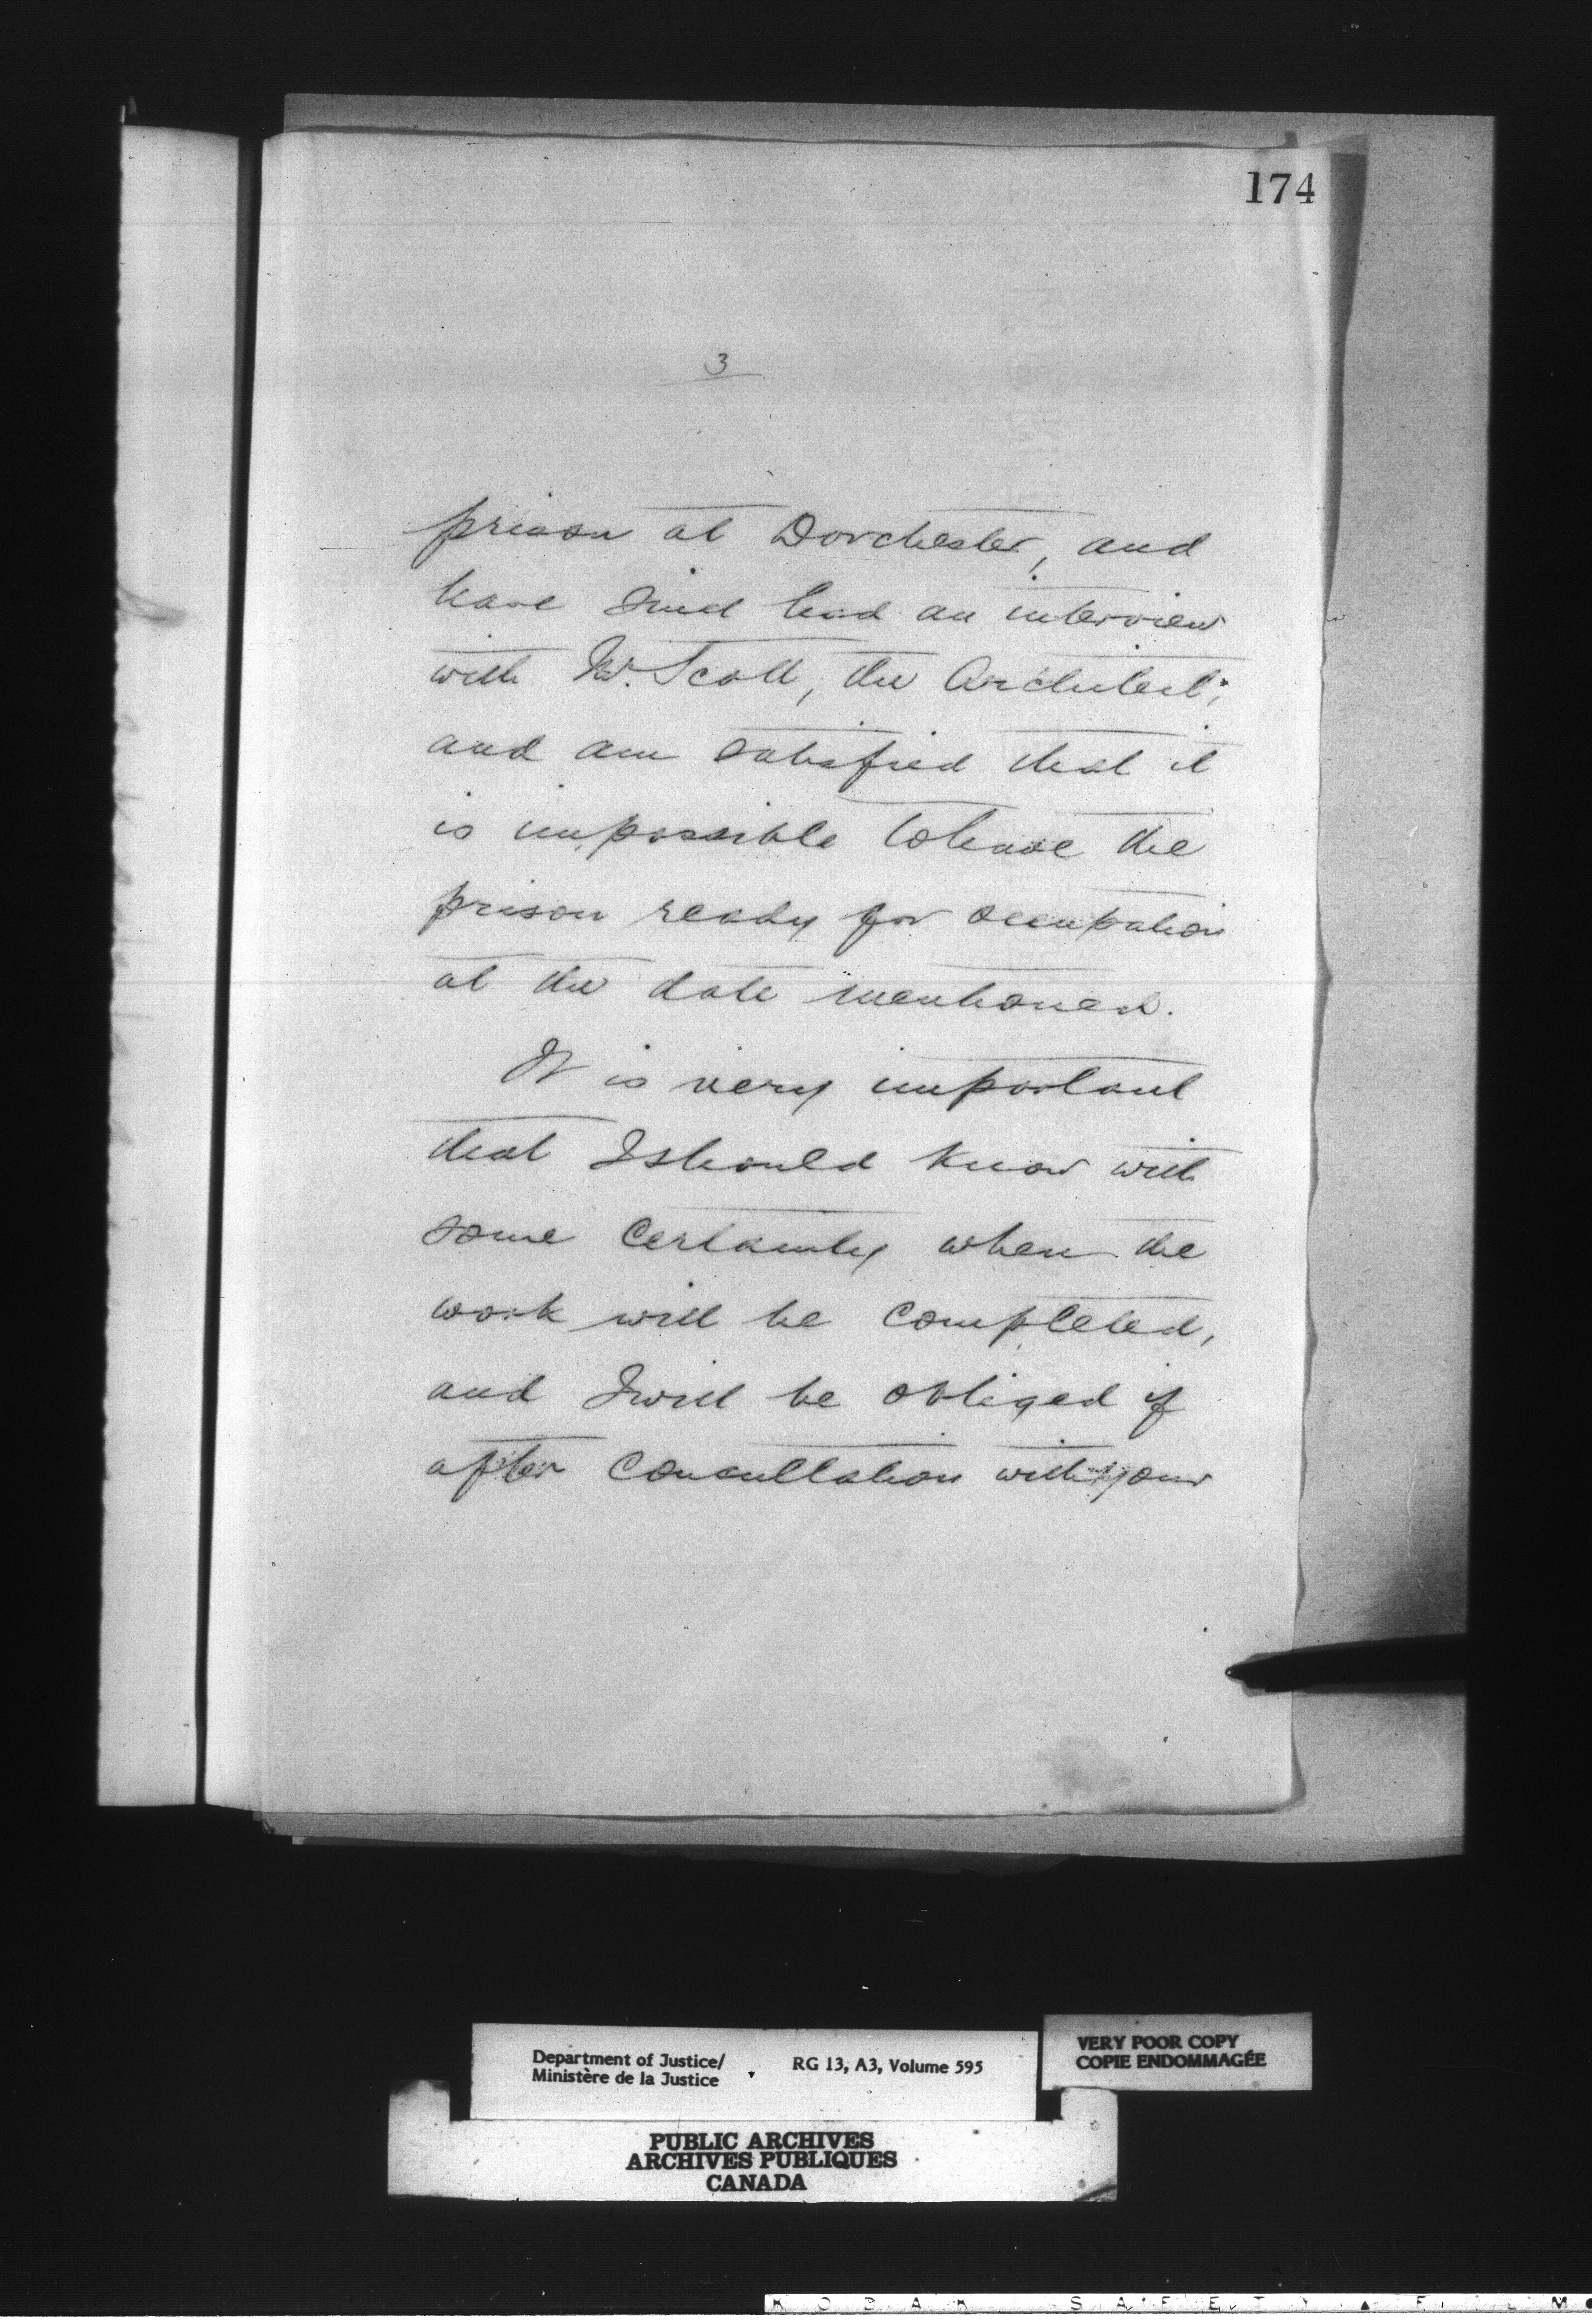 174
3
prison at Dorchester, and
have since had an interview
with Mr. Scott, the Architect;
and am satisfied that it
is impossible to have the
prison ready for occupation
at the date mentioned.
It is very important
that I should know with
some certainty when the
work will be completed,
and I will be obliged if
after consultation with your
Department of Justice/
Ministère de la Justice
RG 13, A3, Volume 595
VERY POOR COPY
COPIE ENDOMMAGÉE
PUBLIC ARCHIVES
ARCHIVES PUBLIQUES
CANADA
KODAK SAFETY FILM